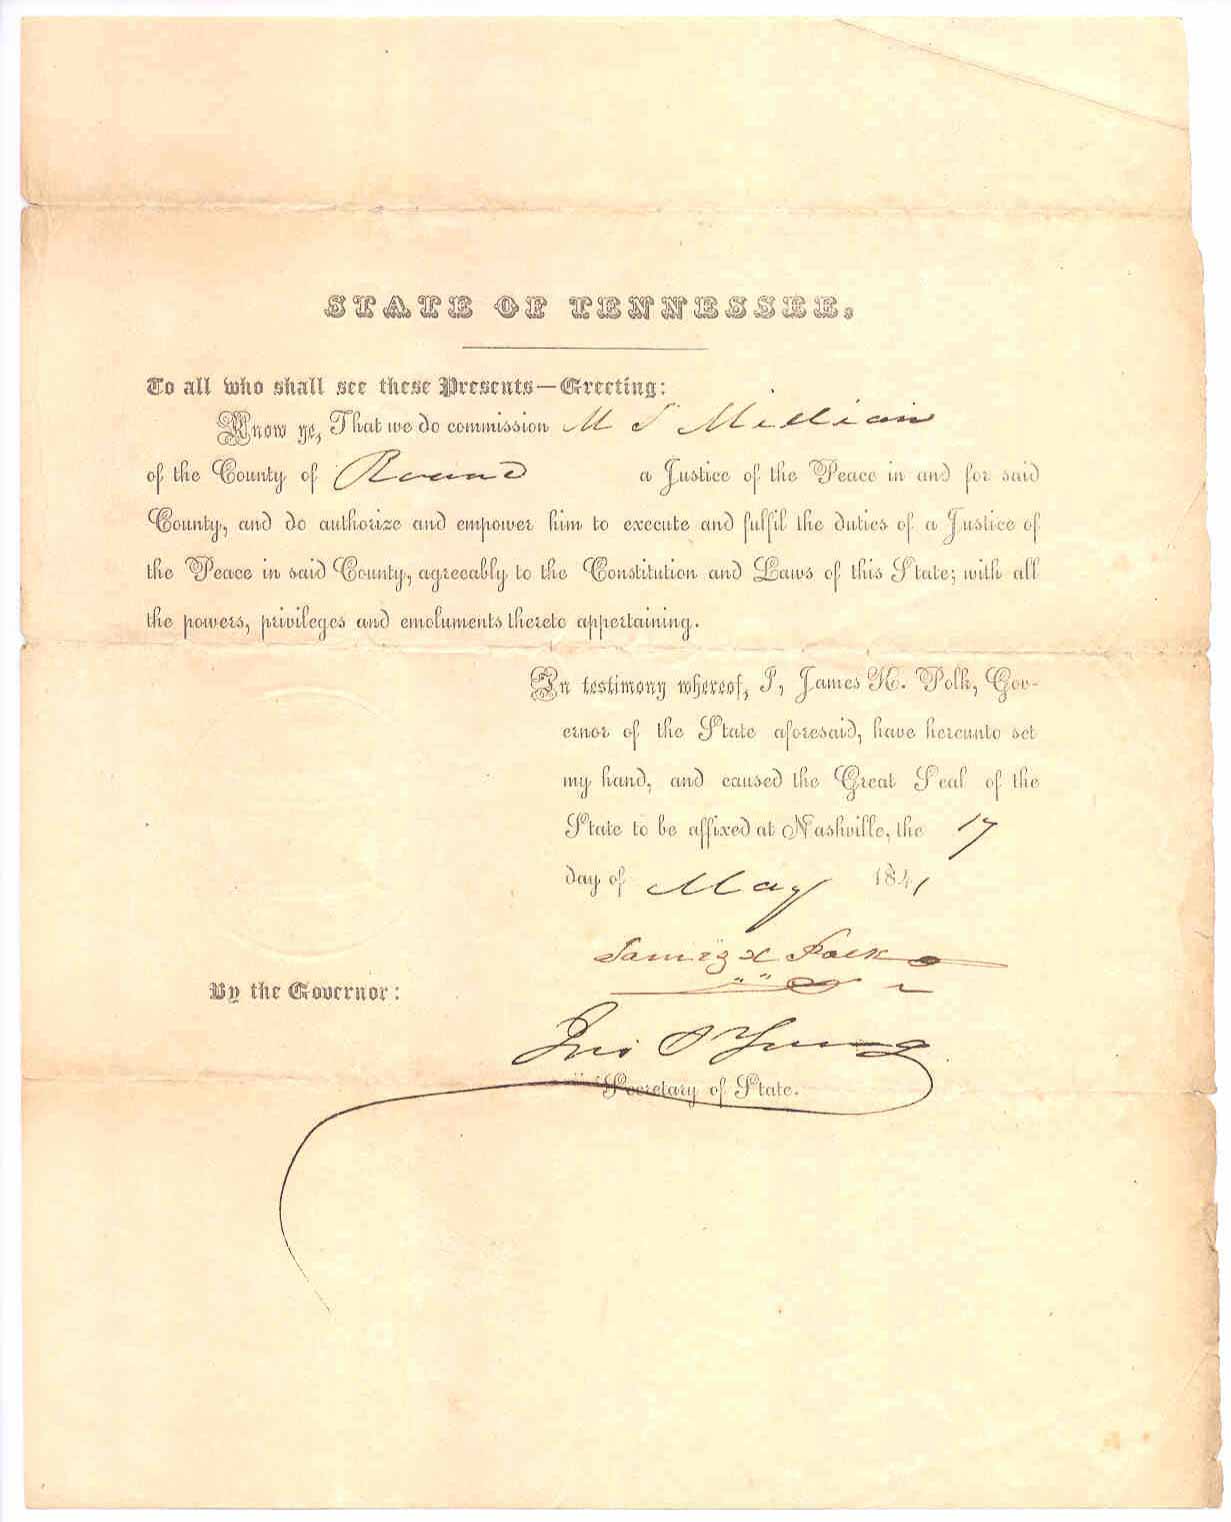 STATE OF TENNESSEE,
To all who shall see these Presents—Greeting:
Know ye, That we do commission M S Millican
of the County of Roane a Justice of the Peace in and for said
County, and do authorize and empower him to execute and fulfil the duties of a Justice of
the Peace in said County, agreeably to the Constitution and Laws of this State; with all
the powers, privileges and emoluments thereto appertaining.
In testimony whereof, I, James K. Polk, Gov-
ernor of the State aforesaid, have hereunto set
my hand, and caused the Great Seal of the
State to be affixed at Nashville, the 17
day of May 1841
James K Polk
By the Governor:
Jno S Young
Secretary of State.